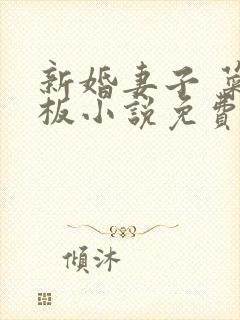 新婚妻子 葉
板小說免費
傾沐